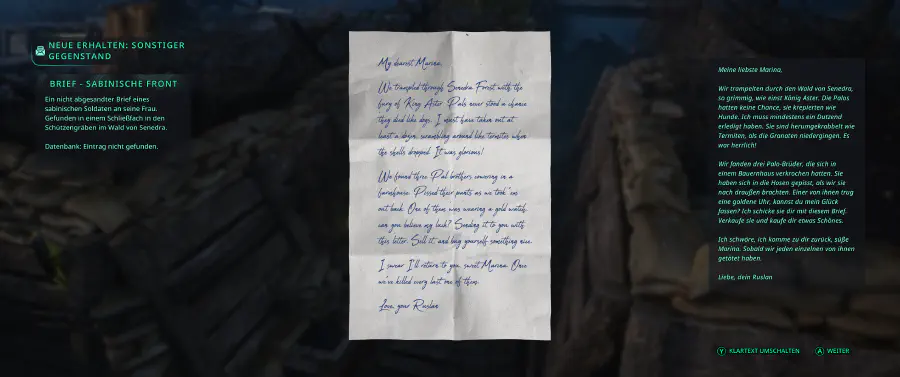 NEUE ERHALTEN: SONSTIGER
GEGENSTAND
BRIEF - SABINISCHE FRONT
Ein nicht abgesandter Brief eines
sabinischen Soldaten an seine Frau.
Gefunden in einem Schließfach in den
Schützengräben im Wald von Senedra.
Datenbank: Eintrag nicht gefunden.
My dearest Marina,
We trampled through Senedra Forest with the
fury of King Aster. Pals never stood a chance
they died like dogs. I must have taken out at
least a dozen, scrambling around like termites when
the shells dropped. It was glorious!
We found three Pal brothers cowering in a
farmhouse. Pissed their pants as we took 'em
out back. One of them was wearing a gold watch,
can you believe my luck? Sending it to you with
this letter. Sell it, and buy yourself something nice.
I swear I'll return to you, sweet Marina. Once
we've killed every last one of them.
Love, your Ruslan
Meine liebste Marina,
Wir trampelten durch den Wald von Senedra,
so grimmig, wie einst König Aster. Die Palas
hatten keine Chance, sie krepierten wie
Hunde. Ich muss mindestens ein Dutzend
erledigt haben. Sie sind herumgekrabbelt wie
Termiten, als die Granaten niedergingen. Es
war herrlich!
Wir fanden drei Pala-Brüder, die sich in
einem Bauernhaus verkrochen hatten. Sie
haben sich in die Hosen gepisst, als wir sie
nach draußen brachten. Einer von ihnen trug
eine goldene Uhr, kannst du mein Glück
fassen? Ich schicke sie dir mit diesem Brief.
Verkaufe sie und kaufe dir etwas Schönes.
Ich schwöre, ich komme zu dir zurück, süße
Marina. Sobald wir jeden einzelnen von ihnen
getötet haben.
Liebe, dein Ruslan
Y KLARTEXT UMSCHALTEN A WEITER